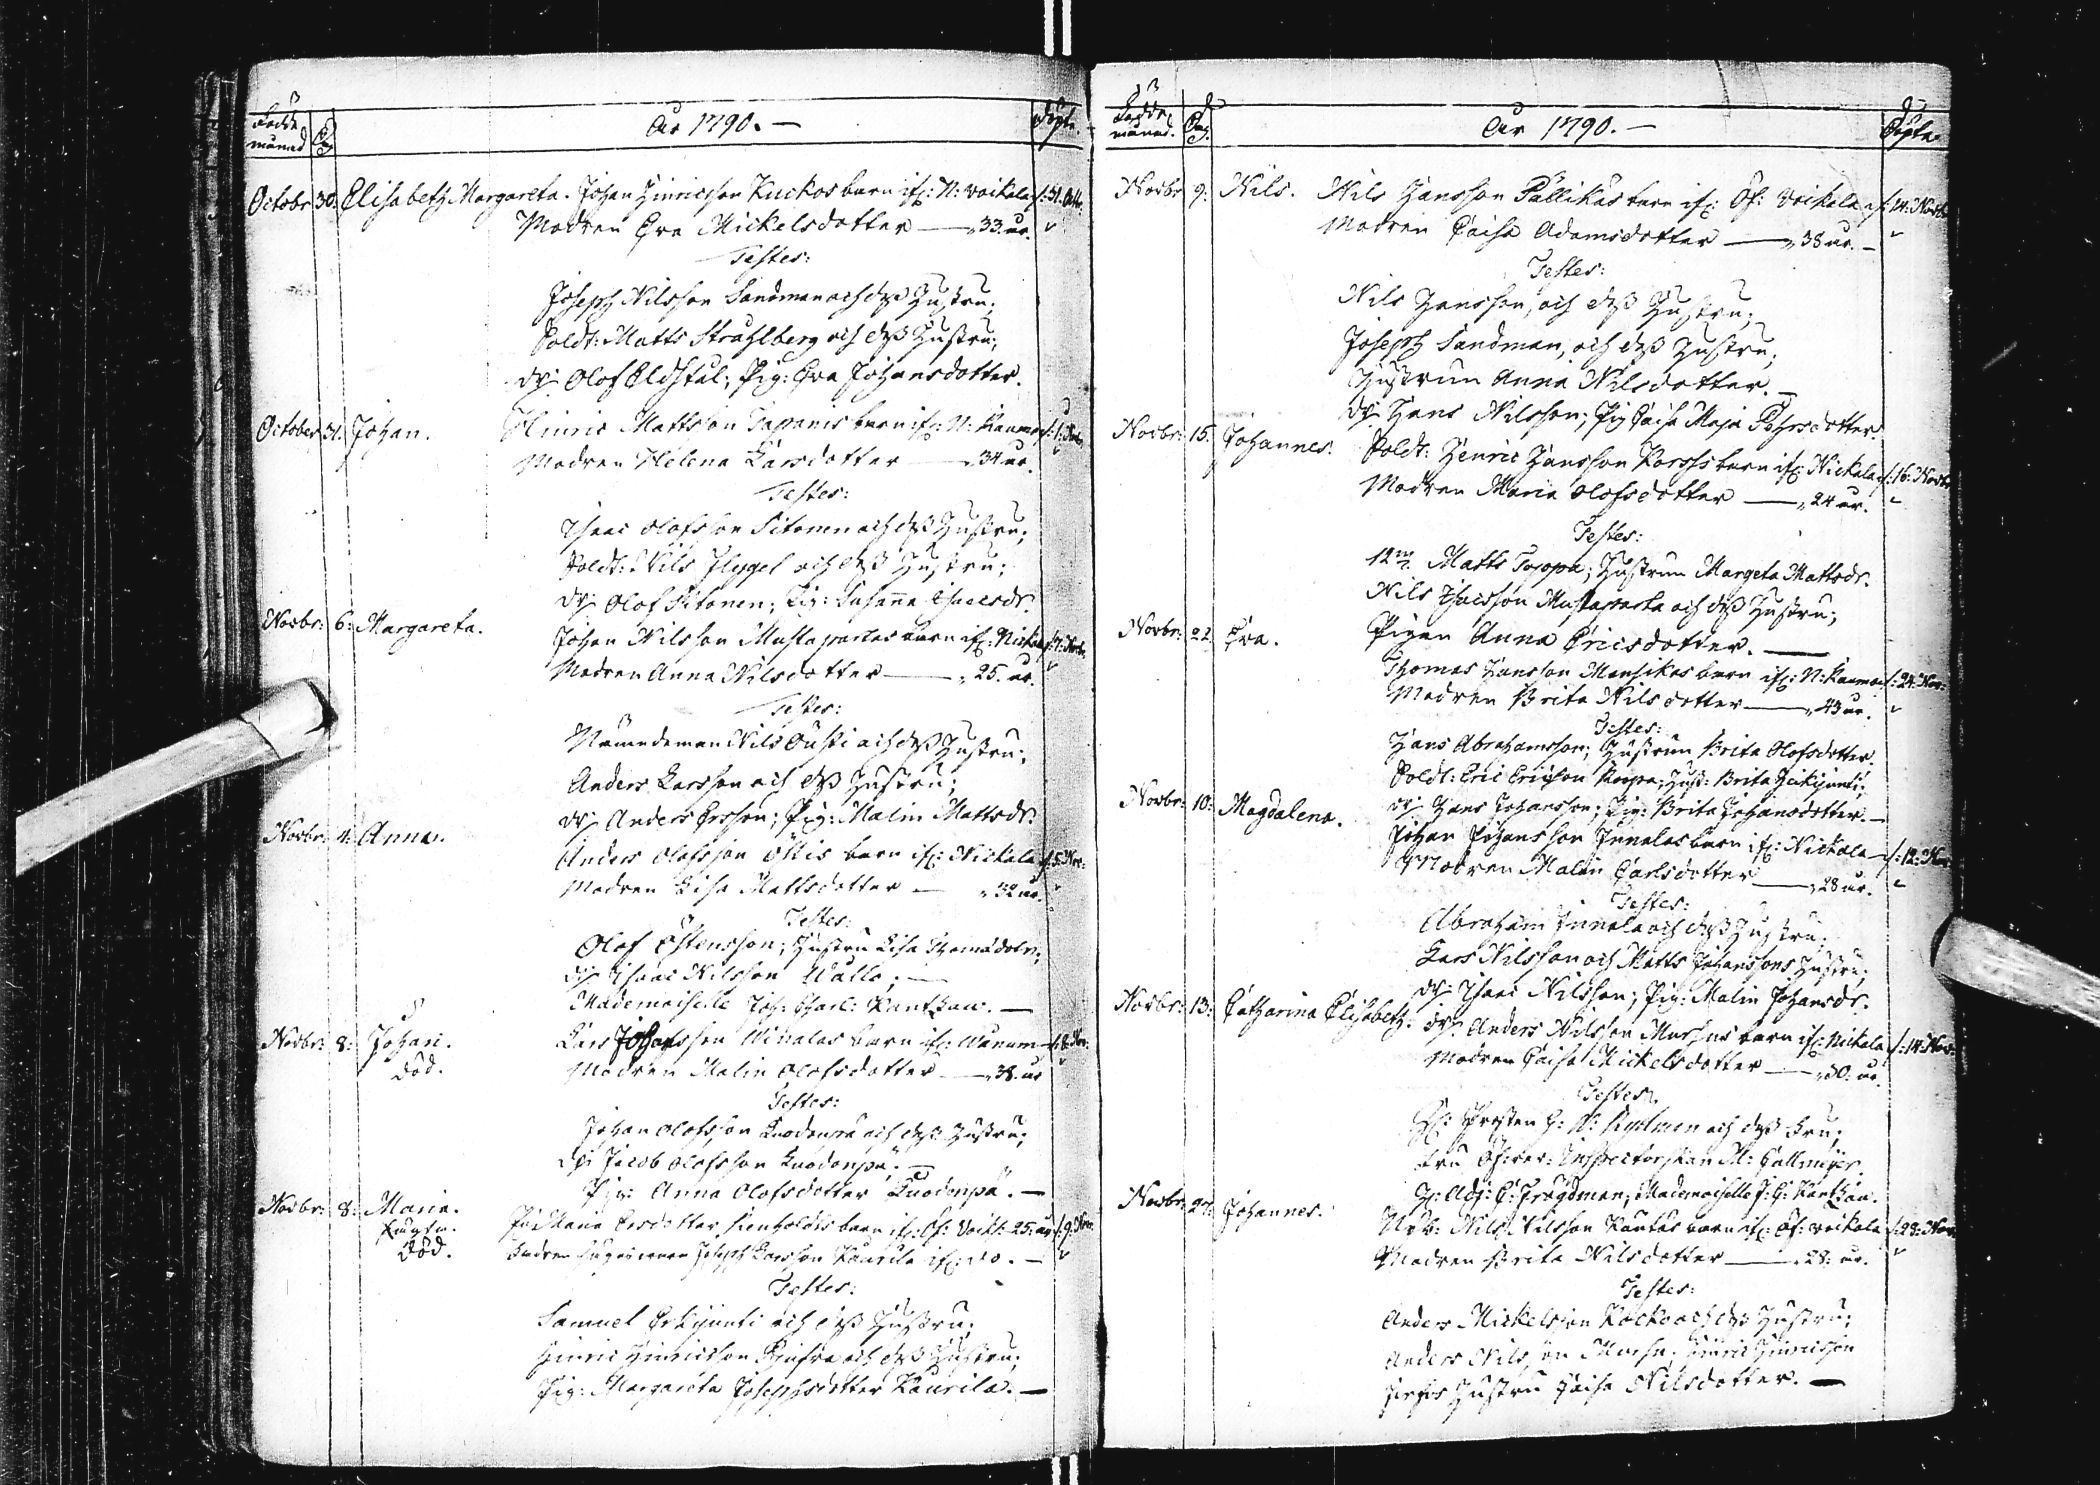 Födde månad Dag År 1790. — Döpte.
Octobr 30. Elisabeth Margareta. Johan Hinricsson Kuckos barn if: N: Voikala d: 31. Octb.
Modren Eva Mickelsdotter — 33. år.
Testes:
Joseph Nilsson Sandman och dess Hustru;
Soldt: Matts Strahlberg och dess Hustru;
dr: Olof Eldstål; Pig: Eva Johansdotter.
October 31. Johan. Hinric Mattsson barn if: N: d: 1: Nov.
Modren Helena Larsdotter — 34 år.
Testes:
Isaac Olofsson Sitonen och dess Hustru;
Soldt: Nils Flygel och dess Hustru;
dr: Olof Sitonen; Pig: Susanna Isacsdr.
Novbr: 6: Margareta. Johan Nilsson Mustapartas barn if: Nickala d: 7: Novb.
Modren Anna Nilsdotter — 25. år.
Testes:
Nämndeman Nils Outi och dess Hustru;
Anders Larsson och dess Hustru;
dr: Anders Ersson; Pig: Malin Mattsdr.
Novbr: 4: Anna. Anders Olofsson Öllis barn if: Nickala d: 5: Nov:
Modren Lisa Mattsdotter — 32 år.
Testes:
Olof Östensson; Hustru Lisa Thomædotr;
dr: Isaac Nilsson Wallo; —
Mademoiselle Joh: Charl: Kantzau. —
Novbr: 8: Johan. Lars Johansson barn if: d: 8: Nov:
död. Modren Malin Olofsdotter — 38. år
Testes:
Johan Olofsson Luodonpä och dess Hustru;
dr: Jacob Olofsson Luodonpä. —
Pig: Anna Olofsdotter Luodonpä. —
Novbr: 8: Maria. Pig Maria Ersdotter barn if: Öf: Voik: 25: år d: 9: Nov.
död. Fadren Joseph Larsson Kaurila if: do. —
Testes:
Samuel Erkijunti och dess Hustru;
Hinric Hinricsson och dess Hustru;
Pig: Margareta Josephsdotter Kaurila. —
Födde månad. Dag. År 1790. — Döpte.
Novbr 9: Nils. Nils Hansson Pallikas barn if: Öf: Voikala d: 14: Novb
Modren Caisa Adamsdotter — 38 år. —
Testes:
Nils Hansson, och dess Hustru;
Joseph Sandman, och dess Hustru;
Hustrun Anna Nilsdotter. —
dr: Hans Nilsson; Pig Caisa Maja Pehrsdotter.
Novbr: 15. Johannes. Soldt: Henric Hansson barn if: Nickala d: 16: Novbr
Modren Maria Olofsdotter — 24 år.
Testes:
12m: Matts; Hustrun Margeta Mattsdr.
Nils Isacsson Mustaparta och dess Hustru;
Pigan Anna Ericsdotter. —
Novbr: 22 Eva. Thomas Hansson Mansikas barn if: N: d: 24: Nov:
Modren Brita Nilsdotter — 43 år.
Testes:
Hans Abrahamsson; Hustrun Brita Olofsdotter
Soldt: Eric Ericsson; Hust: Brita
dr: Hans Johansson; Pig: Brita Johansdotter. —
Novbr: 10: Magdalena. Johan Johansson Innalas barn if: Nickala d: 12: Nov:
Modren Malin Carlsdotter — 28 år.
Testes:
Abraham Innala och dess Hustru;
Lars Nilsson och Matts Johanssons Hustru;
dr: Isaac Nilsson; Pig: Malin Johansdr.
Novbr: 13: Catharina Elisabeth. dr: Anders Nilsson barn if: Nickala d: 14: Nov:
Modren Caisa Mickelsdotter — 30: år.
Testes.
Prosten och dess Fru;
Fru Inspectorskan M: Callmeijer.
H: Adj: E: Frugdman; Mademoiselle J: C: Kantzau.
Novbr: 27: Johannes. Nyb: Nils Nilsson Kautas barn if: Öf: Voikala d: 28: Nov:
Modren Brita Nilsdotter — 28: år.
Testes:
Anders Mickelsson och dess Hustru;
Anders Nilsson; Hinric Hinricsson
Hustru Caisa Nilsdotter. —